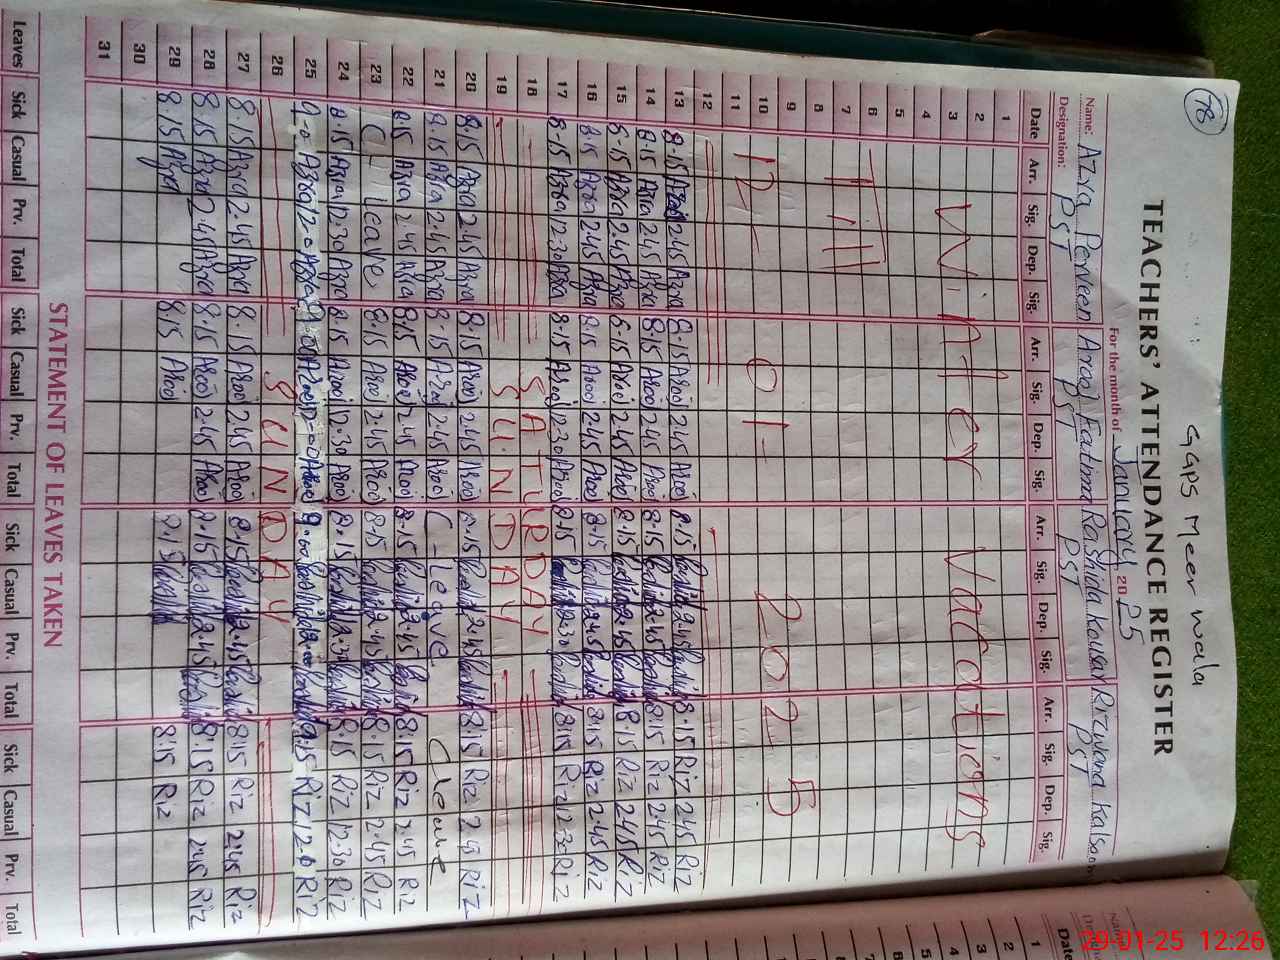 78
GGPS Meer wala
TEACHERS' ATTENDANCE REGISTER
For the month of January 2025
Name: Azra Perveen Arooj Fatima Rashida Kousar Rizwana Kalsoom
Designation: PST PST PST PST
Date Arr. Sig. Dep. Sig. Arr. Sig. Dep. Sig. Arr. Sig. Dep. Sig. Arr. Sig. Dep. Sig.
1
2
3 Winter Vacations
4
5
6
7 Till
8
9
10 12 - 01 - 2025
11
12
13 8-15 Azra 2.45 Azra 8-15 Arooj 2.45 Arooj 8-15 2.45 8.15 Riz 2.45 Riz
14 8-15 Azra 2.45 Azra 8-15 Arooj 2.45 Arooj 8-15 2.45 8.15 Riz 2.45 Riz
15 8-15 Azra 2.45 Azra 8-15 Arooj 2.45 Arooj 8-15 2.45 8-15 Riz 2.45 Riz
16 8-15 Azra 2.45 Azra 8-15 Arooj 2.45 Arooj 8-15 2.45 8.15 Riz 2.45 Riz
17 8-15 Azra 12.30 Azra 8-15 Arooj 12.30 Arooj 8-15 12.30 8.15 Riz 12.30 Riz
18 SATURDAY
19 SUNDAY
20 8.15 Azra 2.45 Azra 8.15 Arooj 2.45 Arooj 8.15 2.45 8.15 Riz 2.45 Riz
21 8.15 Azra 2.45 Azra 8-15 Arooj 2.45 Arooj C-leave C leave
22 8.15 Azra 2.45 Azra 8.15 Arooj 2.45 Arooj 8-15 2.45 8.15 Riz 2.45 Riz
23 C/ leave 8-15 Arooj 2.45 Arooj 8-15 2.45 8.15 Riz 2.45 Riz
24 8.15 Azra 12.30 Azra 8.15 Arooj 12.30 Arooj 8.15 12.30 8.15 Riz 12.30 Riz
25 Azra Riz Riz
26 SUNDAY
27 8.15 Azra 2.45 Azra 8.15 Arooj 2.45 Arooj 8.15 2.45 8.15 Riz 2:45 Riz
28 8.15 Azra 2.45 Azra 8-15 Arooj 2.45 Arooj 8-15 2.45 8.15 Riz 2:45 Riz
29 8.15 Azra 8.15 Arooj 8.15 8.15 Riz
30
31
STATEMENT OF LEAVES TAKEN
Leaves Sick Casual Prv. Total Sick Casual Prv. Total Sick Casual Prv. Total Sick Casual Prv. Total
Name:
Date
1
2
3
4
5
29-01-25 12:26